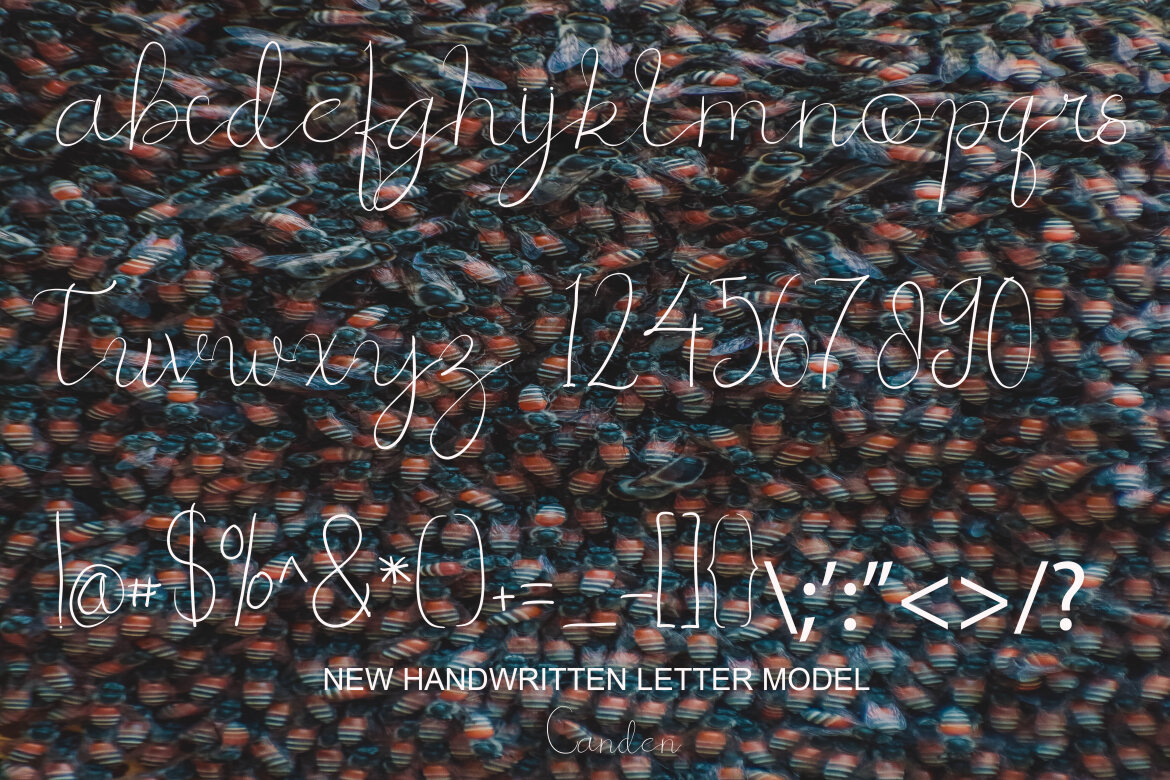 abcdefghijklmnopqrs
Tuvwxyz 1234567890
!@#$%^&*()+=_-[]{}\;':"<>/?
NEW HANDWRITTEN LETTER MODEL
Canden